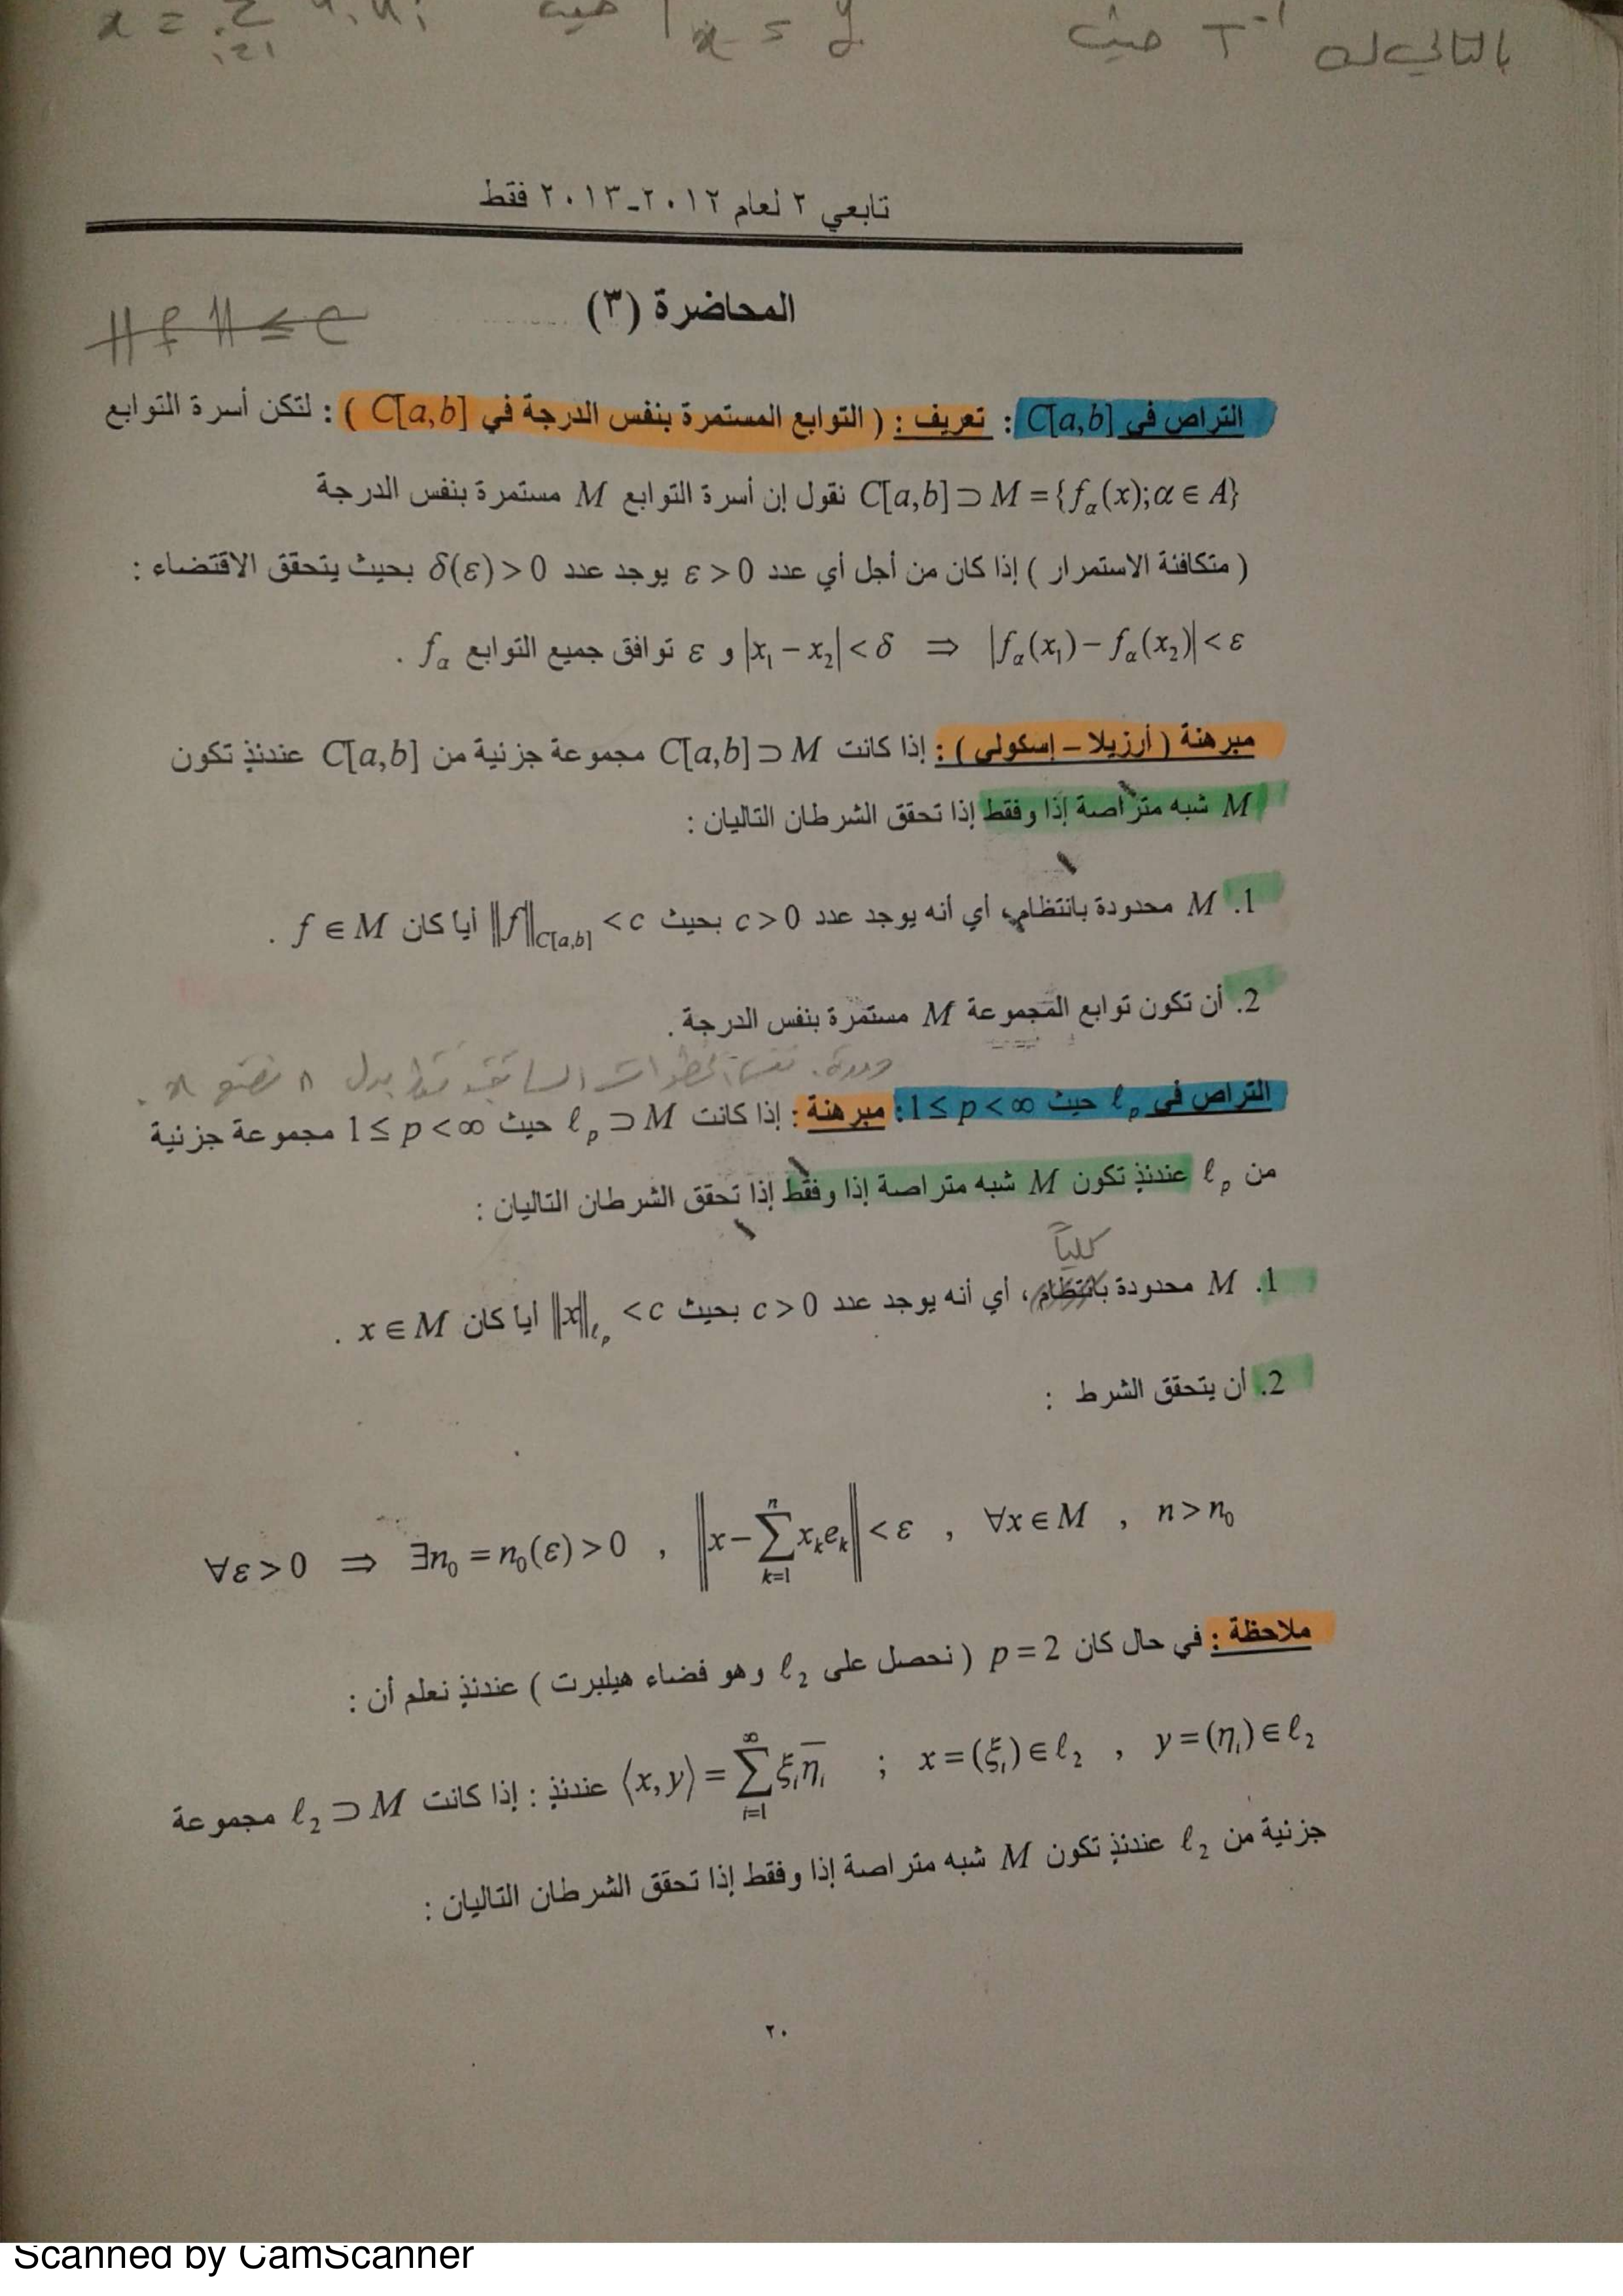 بالتالي له T⁻¹ حيث x = y حيث x =
تابعي ٢ لعام ٢٠١٢-٢٠١٣ فقط
المحاضرة (٣)
‖f‖ ≤ c
التراص في C[a,b] : تعريف : ( التوابع المستمرة بنفس الدرجة في C[a,b] ) : لتكن أسرة التوابع
C[a,b] ⊃ M = {f_α(x); α ∈ A} نقول إن أسرة التوابع M مستمرة بنفس الدرجة
( متكافئة الاستمرار ) إذا كان من أجل أي عدد ε > 0 يوجد عدد δ(ε) > 0 بحيث يتحقق الاقتضاء :
|x₁ − x₂| < δ ⇒ |f_α(x₁) − f_α(x₂)| < ε و ε توافق جميع التوابع f_α .
مبرهنة ( أرزيلا – إسكولي ) : إذا كانت C[a,b] ⊃ M مجموعة جزئية من C[a,b] عندئذٍ تكون
M شبه متراصة إذا وفقط إذا تحقق الشرطان التاليان :
1. M محدودة بانتظام، أي أنه يوجد عدد c > 0 بحيث ‖f‖_C[a,b] < c أيا كان f ∈ M .
2. أن تكون توابع المجموعة M مستمرة بنفس الدرجة .
نفس الخطوات السابقة فقط بدل n نضع x .
التراص في ℓ_p حيث 1 ≤ p < ∞ : مبرهنة : إذا كانت ℓ_p ⊃ M حيث 1 ≤ p < ∞ مجموعة جزئية
من ℓ_p عندئذٍ تكون M شبه متراصة إذا وفقط إذا تحقق الشرطان التاليان :
كلياً
1. M محدودة بانتظام ، أي أنه يوجد عدد c > 0 بحيث ‖x‖_ℓ_p < c أيا كان x ∈ M .
2. أن يتحقق الشرط :
∀ε > 0 ⇒ ∃n₀ = n₀(ε) > 0 , ‖x − ∑_{k=1}^{n} x_k e_k‖ < ε , ∀x ∈ M , n > n₀
ملاحظة : في حال كان p = 2 ( نحصل على ℓ₂ وهو فضاء هيلبرت ) عندئذٍ نعلم أن :
⟨x, y⟩ = ∑_{i=1}^{∞} ξ_i η̄_i ; x = (ξ_i) ∈ ℓ₂ , y = (η_i) ∈ ℓ₂ عندئذٍ : إذا كانت ℓ₂ ⊃ M مجموعة
جزئية من ℓ₂ عندئذٍ تكون M شبه متراصة إذا وفقط إذا تحقق الشرطان التاليان :
٢٠
Scanned by CamScanner